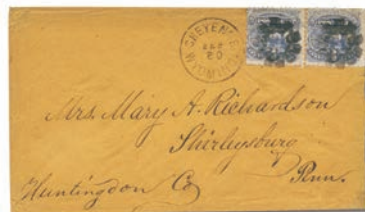 CHEYENNE
MAR
20
WYOMING
Mrs. Mary A. Richardson
Shirleysburg
Penn.
Huntingdon Co